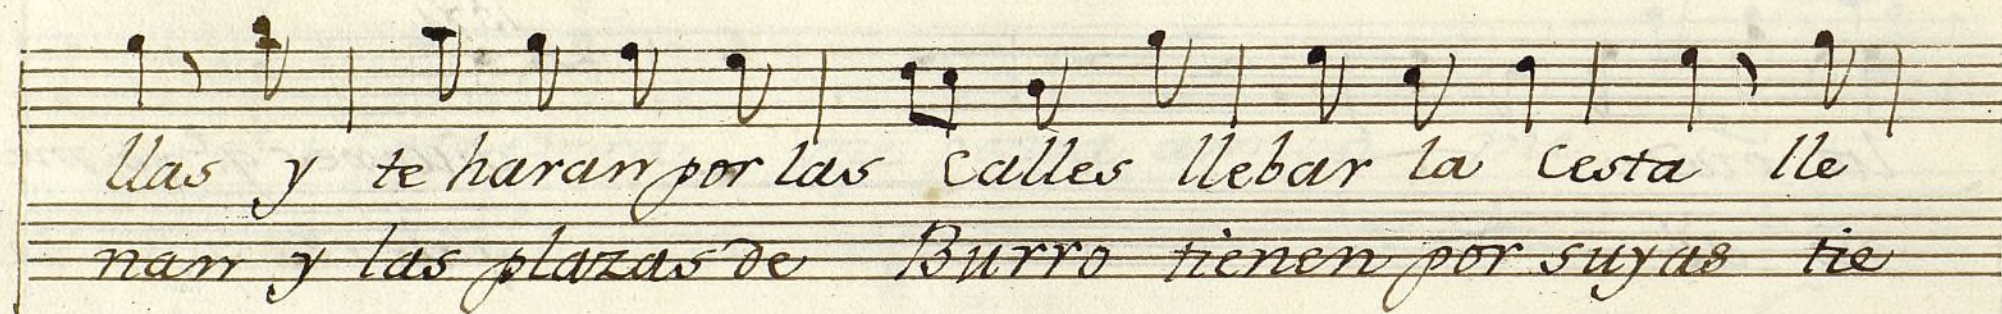 llas y te haran por las calles llebar la cesta lle
nan y las plazas de Burro tienen por suyas tie